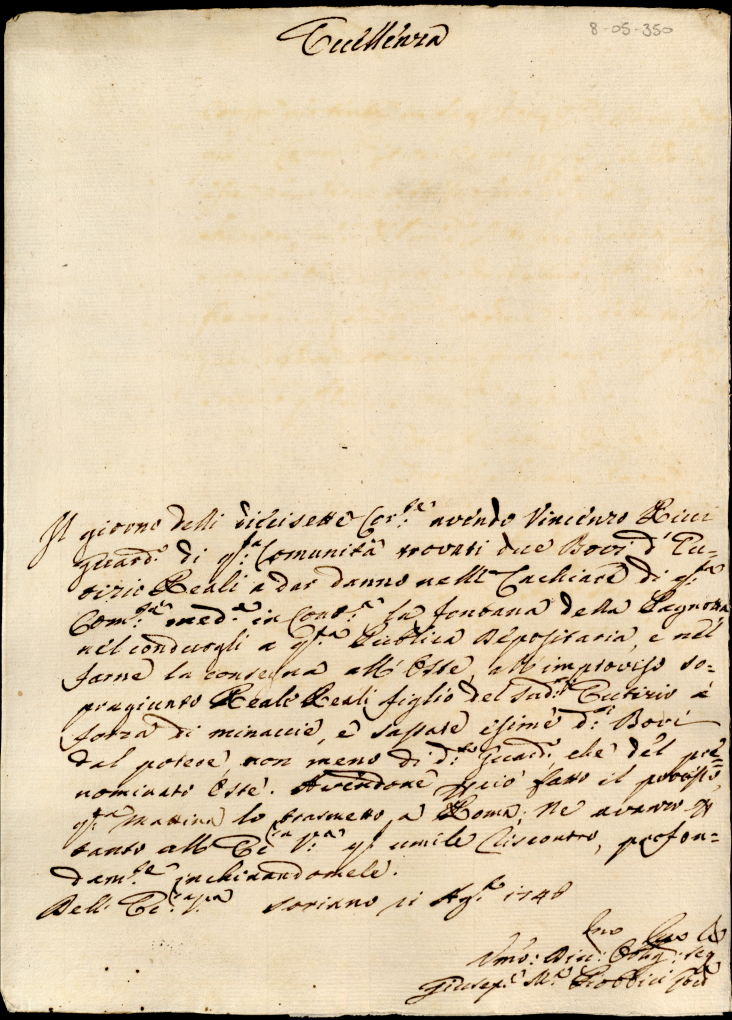 8-05-350
Eccellenza
Il giorno delli diecisette Cor:te avendo Vincenzo Ricci
Guard:o di q:ta Comunità trovati due Bovi d'Eu-
tizio Reali a dar danno nelle Cachiare di q:ta
Com:tà med:a in Cont:a la fontana della
nel condurgli a q:ta Publica Depositaria, e nel
farne la consegna all'Oste, all'improviso so-
pragiunto Reale Reali figlio del sud:o Eutizio à
forza di minaccie, e sassate esimè d:i Bovi
dal potere non meno di d:o Guard:o, che del pre-
nominato Oste. Avendone perciò fatto il
q:ta Mattina lo trasmetto a Roma; Ne avanzo per
tanto all'Ec:za V:ra q:o umile Riscontro, profon-
dam:te inchinandomele.
Dell'Ec:za V:ra Soriano 21 Ag:to 1748
Umo: Div: Obligat: Ser
Giusep:e M:a